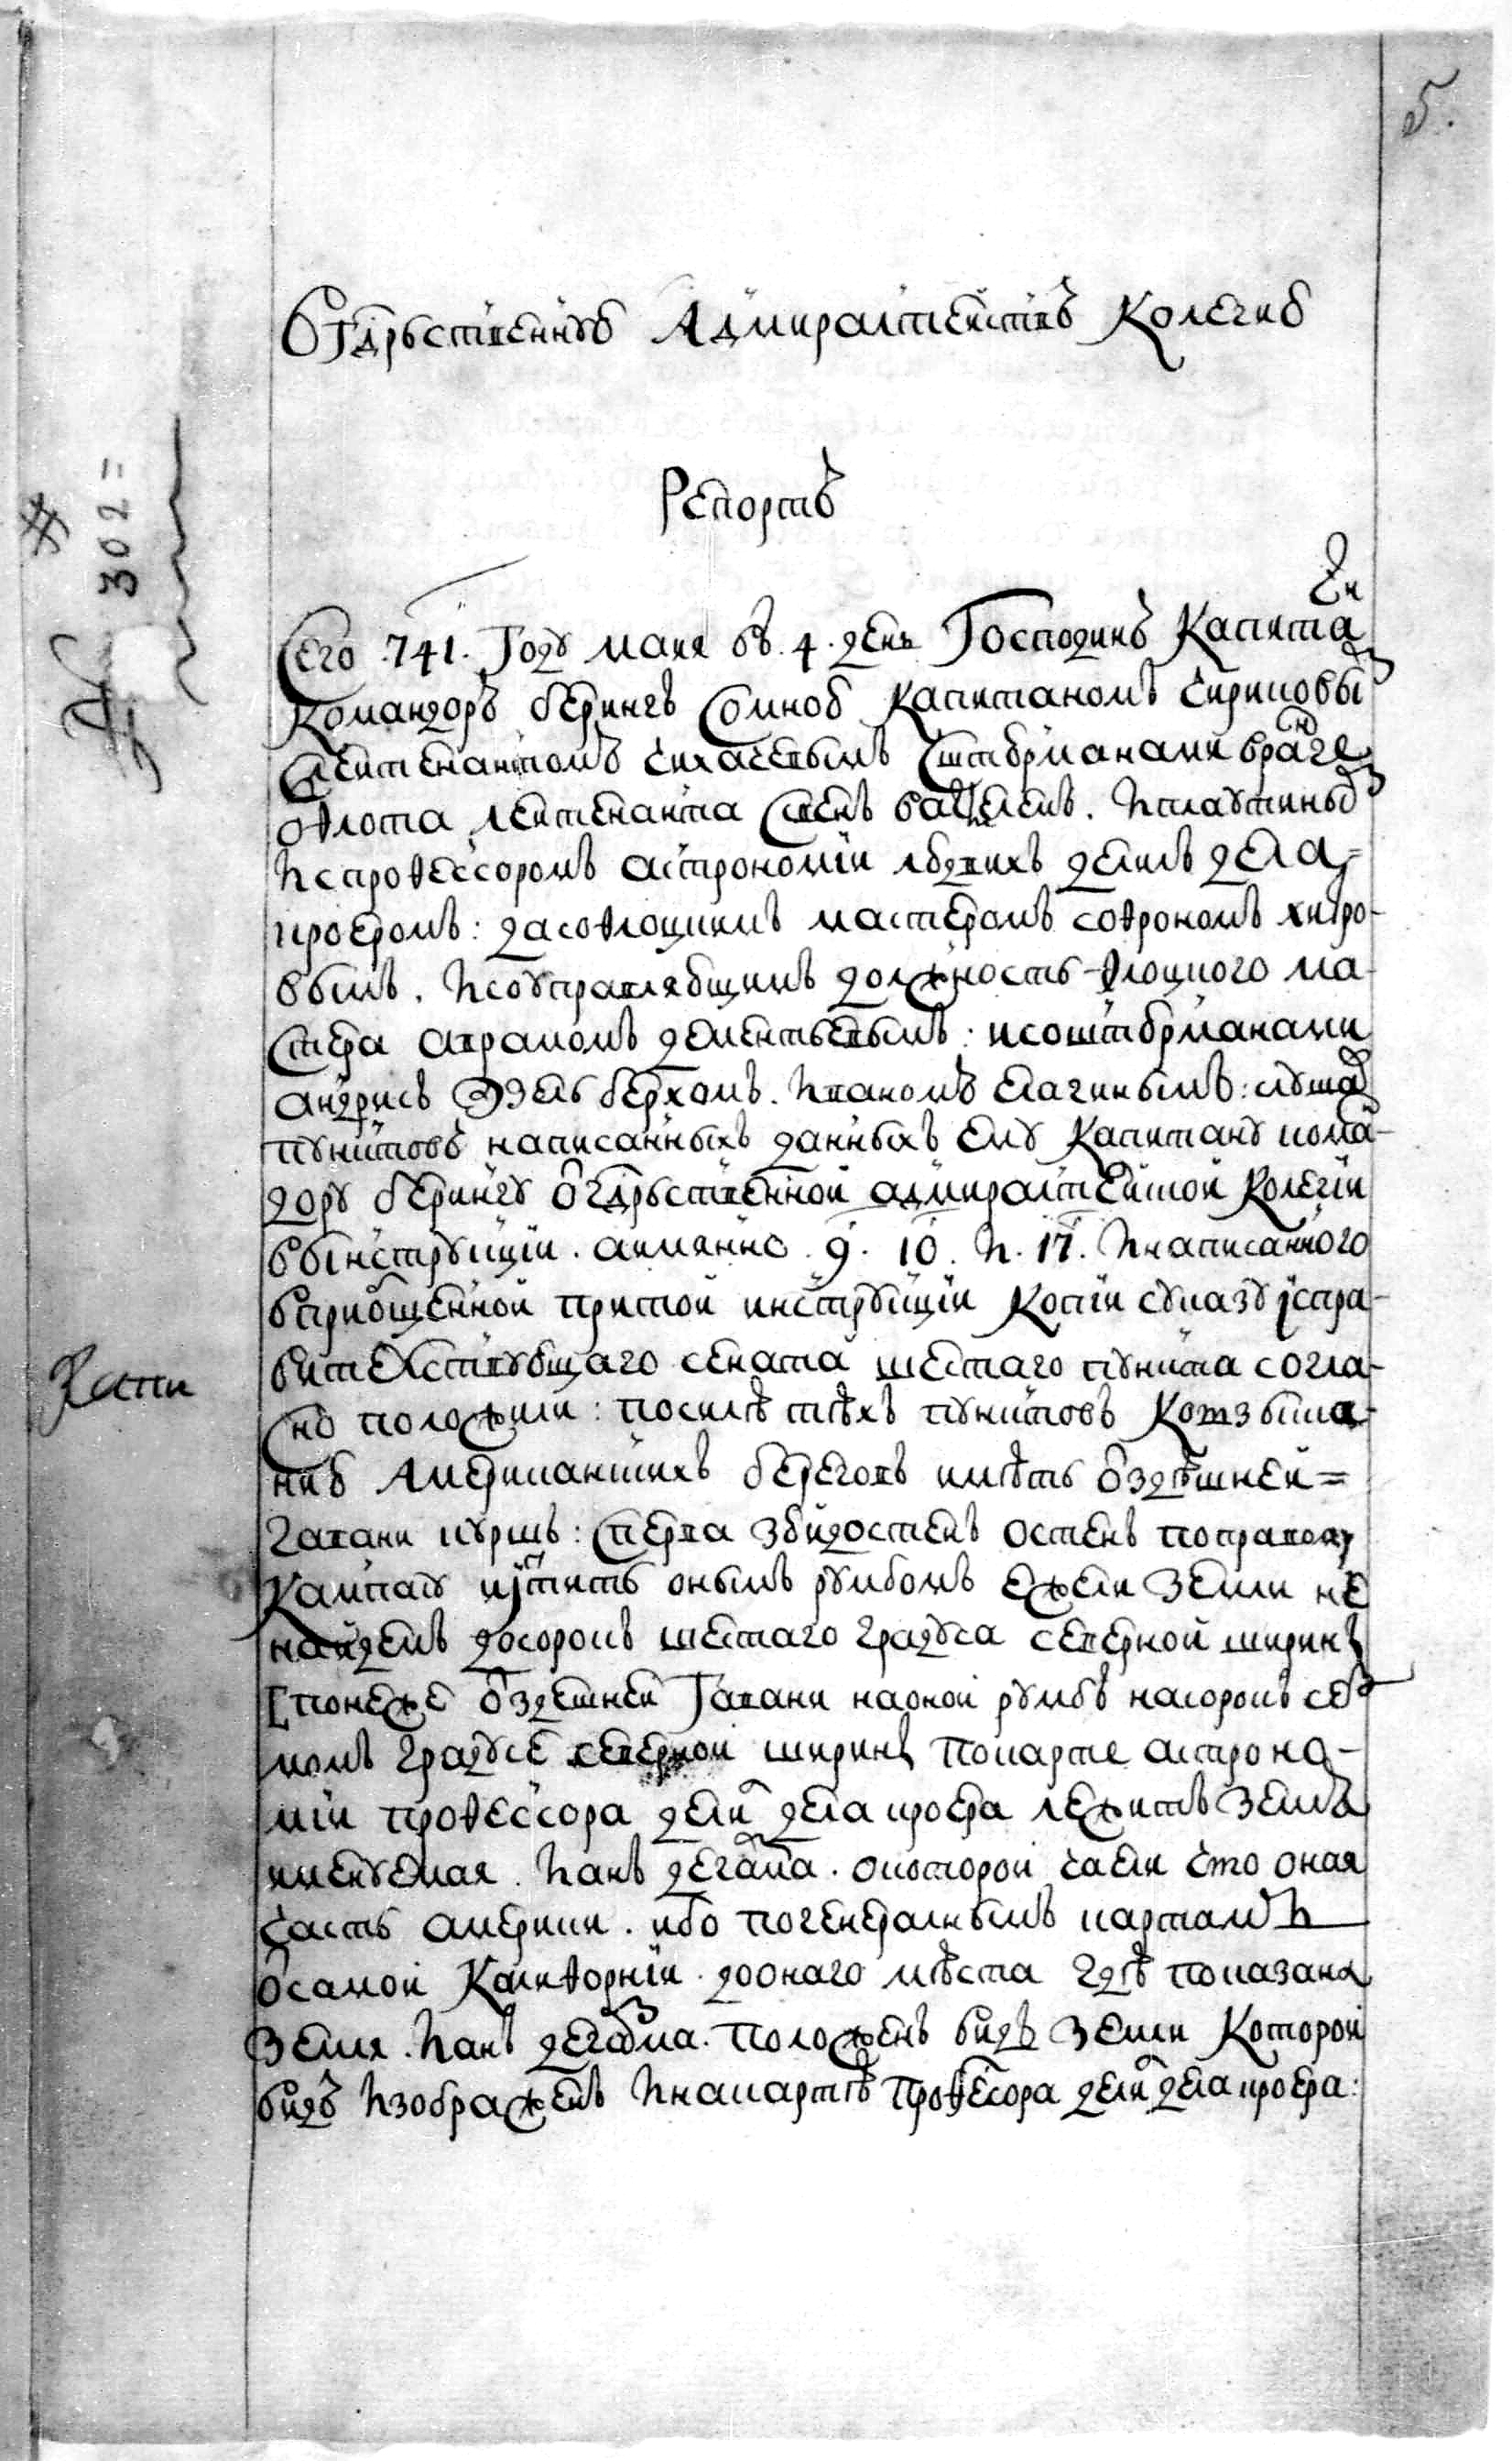 5.
В Гд҃рьственную Адмиралтеискую Колегию
№ 302 =
Репортъ
Сего 741. Году маия въ. 4. день Господинъ Капитан
Командоръ берингъ Со мною капитаномъ чириковы
Слеитенантомъ чихачевымъ Сштюрманами в ранге
флота леитенанта Свенъ ваксел емъ. И плаутины
И с профессоромъ астрономии людвихъ делилъ дела
кроеромъ: да со флоцкимъ мастеромъ софрономъ хитро-
вымъ. И со управляющимъ должность флоцкого ма-
стера аврамомъ дементьевымъ: и со штюрманами
андрисъ Эзельберхомъ. И иваномъ елагинымъ: слушав
пунктовъ написанныхъ данныхъ ему капитану кома-
дору берингу в гд҃рьственной адмиралтеиской Колегии
в ынструкции. а имянно. 9. 10. И. 17. И написанного
в приобщенной при той инструкции копии с указу ис пра-
вительствующаго сената шестаго пункта согла-
сно положили: по силе техъ пунктовъ Котз быска-
нию Американскихъ береговъ иметь в здешней =
Гавани куршъ: Сперва зюидостенъ остенъ по правому
Капасу и итить онымъ румбомъ ежели земли не
найдемъ до сорокъ шестаго градуса северной ширины
[понеже в здешней Гавани на оной румбъ на сорокъ седь
момъ градусе северной ширины по карте астроно-
мии профессора делил дела кроера лежитъ земля
имянуемая. Ианъ дегама. о которой чаели что оная
часть америки. ибо по генералнымъ картамъ
в самой Калифорнии. до онаго места где показана
земля. Ианъ дегама. положенъ видъ земли которой
видъ изображенъ и на карте профессора делил дела кроера: